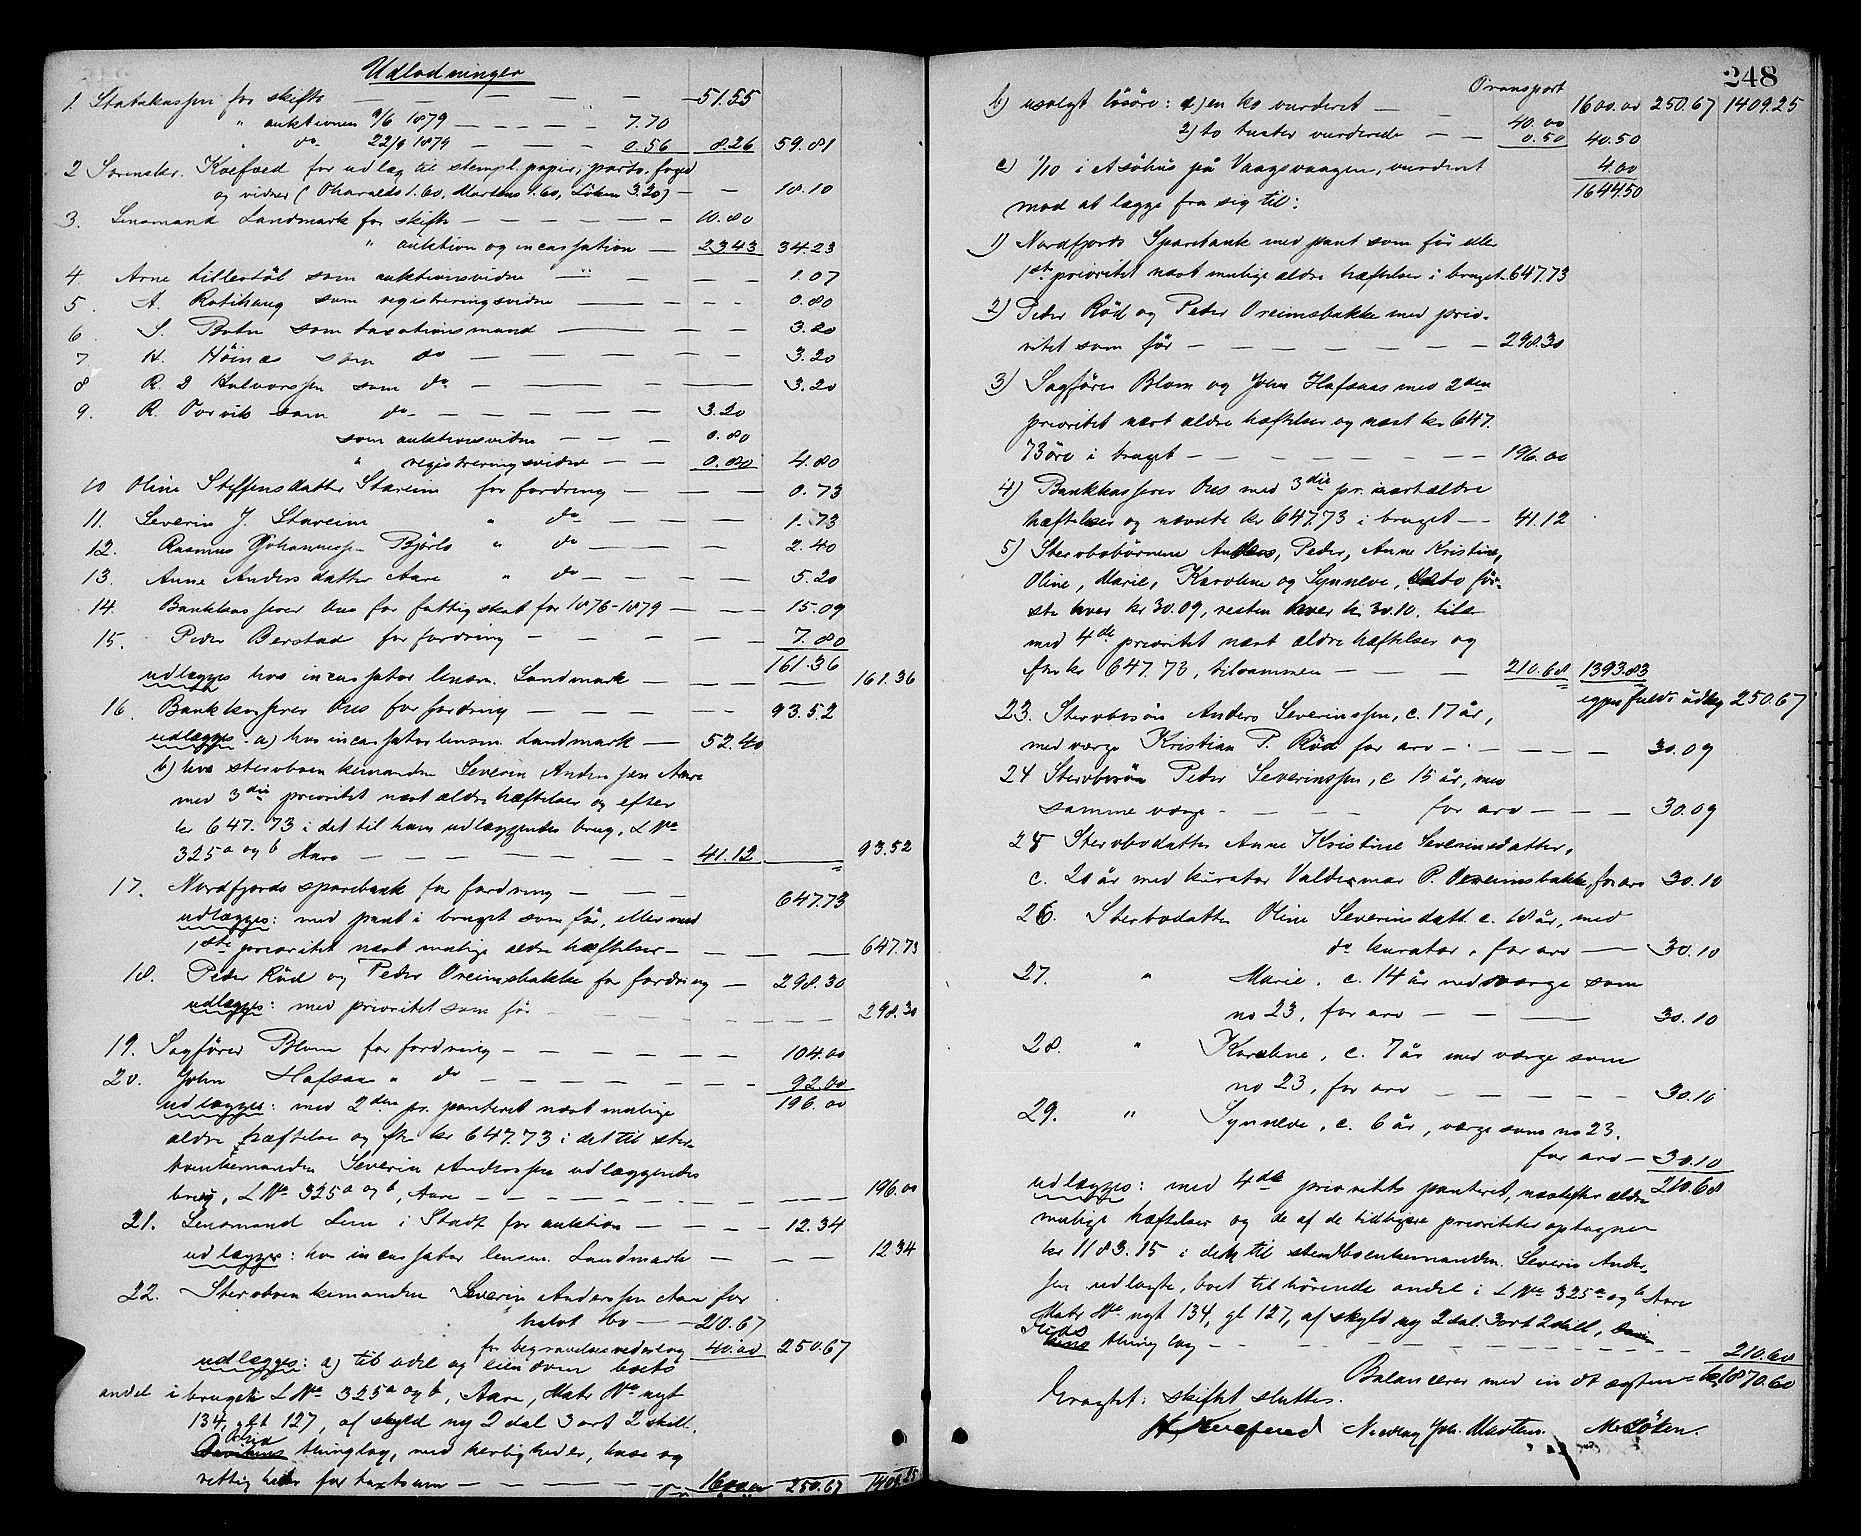 Udlodninger
1 Statskassen for skifte — — — — 51.55
" auktionen 9/6 1879 — — — — 7.70
" do 22/9 1879 — — — 0.56 8.26 59.81
2 Sorenskr. Koefoed for udlæg til stempl. papir, porto, foged
og vidner (Tharalds 1.60, Martens 1.60, Löken 3.20) — — 18.10
3. Lensmand Landmark for skifte — — — — — 10.80
" auktion og incassation — 23.43 34.23
4 Arne Lillestöl som auktionsvidne — " — — — 1.07
5. A. Rotihaug som registreringsvidne — — — — — 0.80
6. S. Botn som taxationsmand — — — — 3.20
7. N. Höinæs som do — — — — — 3.20
8 R. D Halvorssen som do — — — — 3.20
9. R. Torvik som do — — — — — 3.20
som auktionsvidne — — — 0.80
" registreringsvidne — — 0.80 4.80
10 Oline Steffensdatter Stareim for fordring — — — 0.73
11. Severin J. Stareim " do — — — — 1.73
12. Rasmus Johannessen Björlo " do — — — — 2.40
13. Anne Andersdatter Aare " do — — — — 5.20
14. Bankkasserer Aus for fattigskat for 1876-1879 — — 15.09
15. Peder Berstad for fordring — — — — 7.80
161.36
udlægges hos incassator lensm. Landmark — — — — 161.36
16. Bankkasserer Aus for fordring — — — — 93.52
udlægges: a) hos incassator lensm. Landmark — 52.40
b) hos stervboenkemanden Severin Anderssen Aare
med 3die prioritet næst ældre hæftelser og efter
kr 647.73 i det til ham udlæggendes brug, L No
325 a og b Aare — — — — — — 41.12 93.52
17. Nordfjords sparebank for fordring — — — 647.73
udlægges: med pant i bruget som för, eller med
1ste prioritet næst mulige ældre hæftelser — — — — 647.73
18. Peder Röd og Peder Oreimsbakke for fordring — 298.30
udlægges: med prioritet som för — — — — — — 298.30
19. Sagförer Blom for fordring — — — — — — 104.00
20. John Hafsaas " do — — — — — — 92.00
196.00
udlægges: med 2den pr. panteret næst mulige
ældre hæftelser og efter kr 647.73 i det til ster-
boenkemanden Severin Anderssen udlæggendes
brug, L No 325 a og b, Aare — — — — — — 196.00
21. Lensmand Lem i Stadt for auktion — — — — 12.34
udlægges: hos incassator lensm. Landmark — — — 12.34
22. Stervboenkemanden Severin Anderssen Aare for
halvt bo — — 210.67
for begravelsesvederlag 40.00 250.67
udlægges: a) til odel og eiendom boets
andel i bruget L No 325 a og b, Aare, Matr No nyt
134, gl 127, af skyld ny 2 dal 3 ort 2 skill.
Eids thinglag, med herligheder, huse og
rettigheder for taxtsum — — — — 1600.00 250.67 1409.25
248
Transport
1600.00 250.67 1409.25
b) usolgt lösöre: 1) en ko vurderet — — 40.00
2) to tuster vurderede — — 0.50 40.50
c) 1/10 i et Söhus på Vaagsvaagen, vurderet 4.00
1644.50
mod at lægge fra sig til:
1) Nordfjords Sparebank med pant som för eller
1ste prioritet næst mulige ældre hæftelser i bruget 647.73
2) Peder Röd og Peder Oreimsbakke med prio-
ritet som för — — — — — — 298.30
3) Sagförer Blom og John Hafsaas med 2den
prioritet næst ældre hæftelser og næst kr 647.
73 öre i bruget — — — — — — 196.00
4) Bankkasserer Aus med 3die pr. næst ældre
hæftelser og nævnte kr 647.73 i bruget — — 41.12
5) Stervbobörnene Anders, Peder, Anne Kristine,
Oline, Marie, Karoline og Synneve, de to för-
ste hver kr 30.09, resten hver kr 30.10. tils.
med 4de prioritet næst ældre hæftelser og
efter kr 647.73, tilsammen — — — 210.68 1393.83
igjen fuldt udlæg 250.67
23. Stervbosön Anders Severinssen, c. 17 år,
med værge Kristian P. Röd for arv — — — — — 30.09
24 Stervbosön Peder Severinssen, c 15 år, med
samme værge — — — — for arv — — — 30.09
25 Stervbodatter Anne Kristine Severinsdatter,
c. 20 år med kurator Valdemar P. Oreimsbakke, for arv 30.10
26. Sterbodatter Oline Severinsdatt. c. 18 år, med
do kurator, for arv — 30.10
27. " Marie, c. 14 år med værge som
no 23, for arv — — — 30.10
28. " Karoline, c. 7 år med værge som
no 23, for arv — — — — — 30.10
29. " Synneve, c. 6 år, værge som no 23.
for arv — 30.10
udlægges: med 4de prioritets panteret, næstefter ældre 210.68
mulige hæftelser og de af de tidligere prioriteter optagne
kr 1183.15 i det til stervboenkemanden Severin Ander-
sen udlagte, boet tilhörende andel i L No 325 a og b Aare
Matr No nyt 134, gl 127, af skyld ny 2 dal. 3 ort 2 skill,
Eids thinglag — — — — — — — — — — 210.68
Balancerer med indtægten kr 1870.60
Eragtet: skiftet sluttes.
H. Koefoed Nicolay Joh. Martens. M Löken.